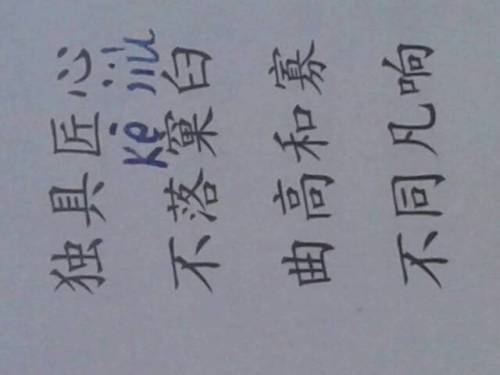 独具匠心
kē jiù
不落窠臼
曲高和寡
不同凡响